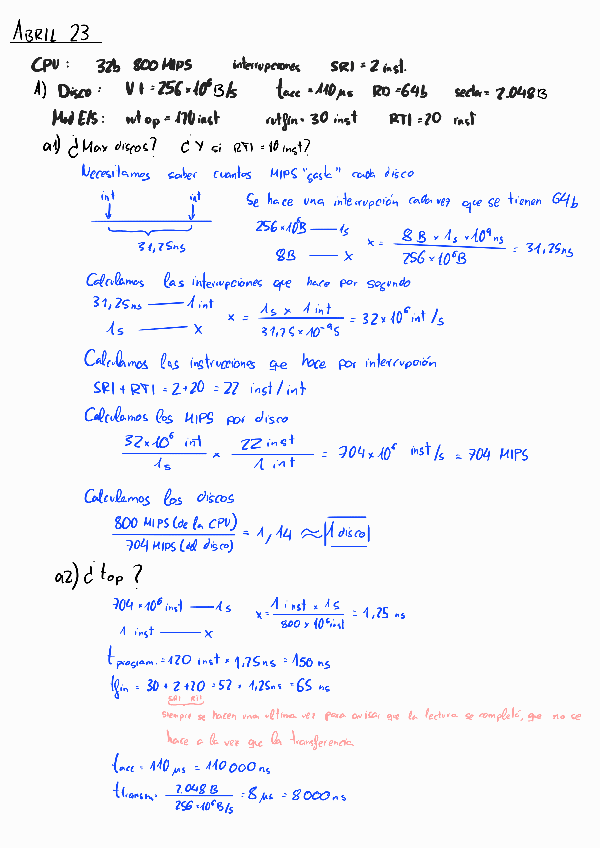 ABRIL 23
CPU: 32b 800 MIPS interrupciones SRI = 2 inst.
1) Disco: Vt = 256×10⁶B/s tacc = 110 μs RD = 64b sector = 2.048B
Mod E/S: wt op = 120 inst rutfin = 30 inst RTI = 20 inst
a1) ¿Max discos? ¿Y si RTI = 10 inst?
Necesitamos saber cuantos MIPS "gasta" cada disco
int int Se hace una interrupción cada vez que se tienen 64b
31,25ns
256×10⁶B — 1s
8B — x
x = 8B × 1s × 10⁹ns / 256×10⁶B = 31,25ns
Calculamos las interrupciones que hace por segundo
31,25ns — 1 int
1s — x
x = 1s × 1 int / 31,25×10⁻⁹s = 32×10⁶ int/s
Calculamos las instrucciones que hace por interrupción
SRI + RTI = 2+20 = 22 inst/int
Calculamos los MIPS por disco
32×10⁶ int / 1s × 22 inst / 1 int = 704×10⁶ inst/s = 704 MIPS
Calculamos los discos
800 MIPS (de la CPU) / 704 MIPS (del disco) = 1,14 ≈ |1 disco|
a2) ¿top?
704×10⁶ inst — 1s
1 inst — x
x = 1 inst × 1s / 800×10⁶inst = 1,25 ns
tprogram. = 120 inst × 1,25ns = 150 ns
tfin = 30 + 2 + 20 = 52 × 1,25ns = 65 ns
SRI RTI
siempre se hacen una ultima vez para avisar que la lectura se completó, que no se
hace a la vez que la transferencia
tacc = 110 μs = 110 000 ns
ttransm. = 2.048 B / 256×10⁶B/s = 8 μs = 8000 ns